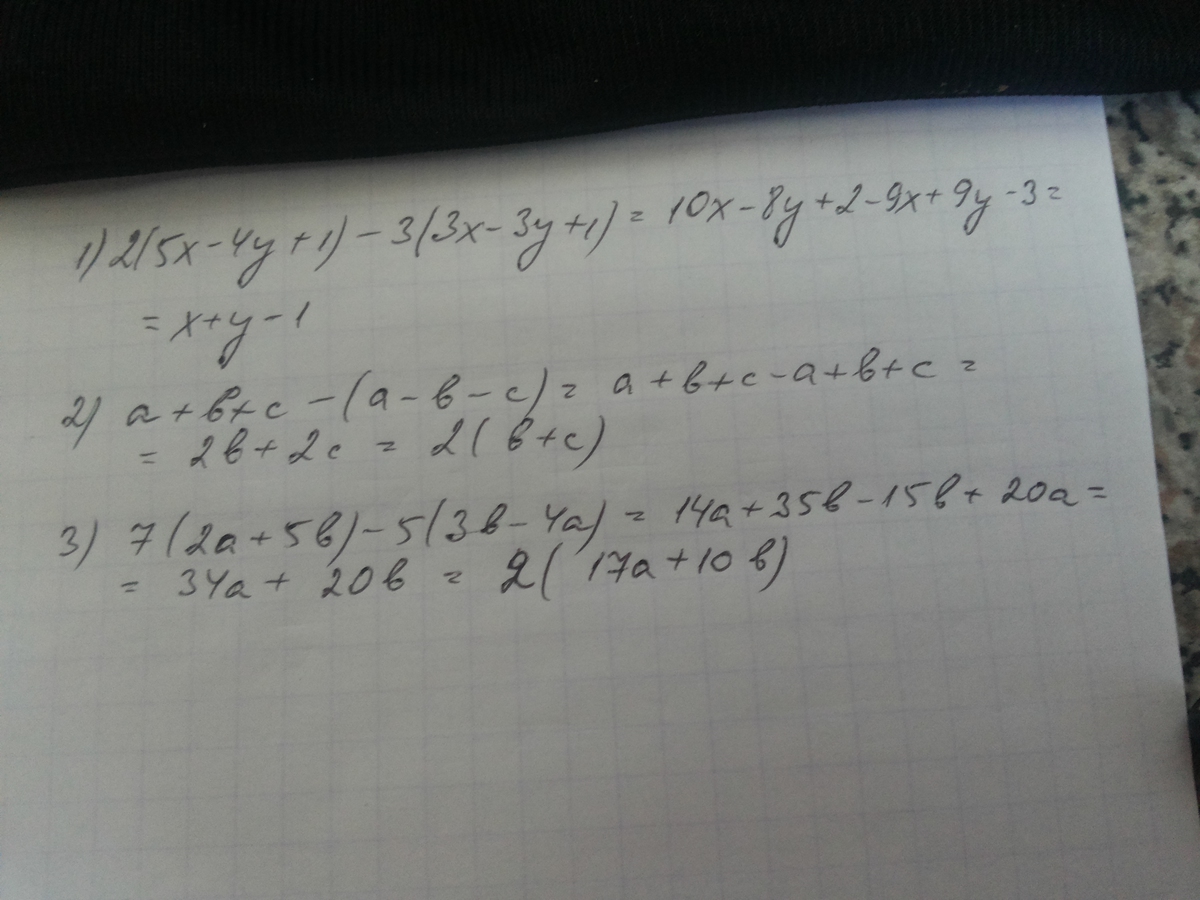 1) 2(5x-4y+1)-3(3x-3y+1)= 10x-8y+2-9x+9y-3=
= x+y-1
2) a+в+c-(a-в-c)= a+в+c-a+в+c=
= 2в+2c = 2(в+c)
3) 7(2a+5в)-5(3в-4a)= 14a+35в-15в+20a=
= 34a+20в = 2(17a+10в)